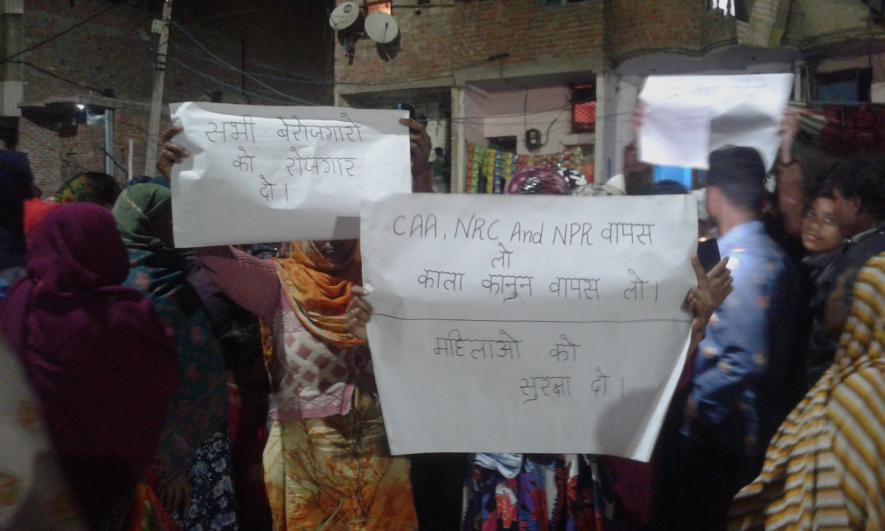 सभी बेरोजगारो
को रोजगार
दो।
CAA, NRC And NPR वापस
लो
काला कानुन वापस लो।
महिलाओ को
सुरक्षा दो।